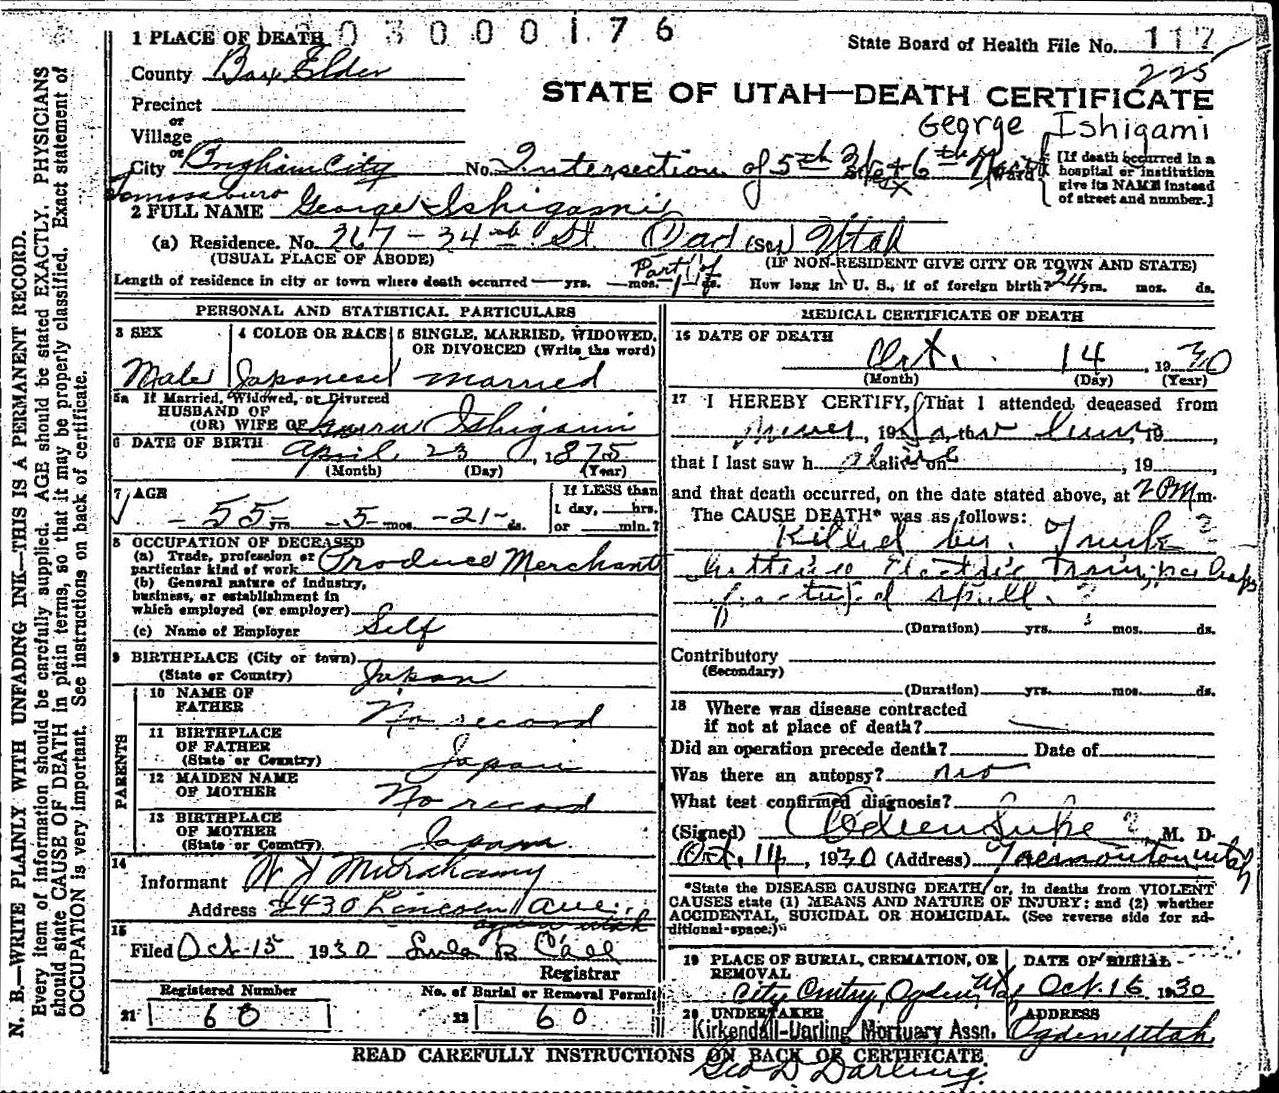 03000176
1 PLACE OF DEATH
State Board of Health File No. 117
225
County Box Elder
STATE OF UTAH—DEATH CERTIFICATE
Precinct
or
Village
George Ishigami
or
City Brigham City No. Intersection of 5th St & 6th Ward
[If death occurred in a hospital or institution give its NAME instead of street and number.]
2 FULL NAME George Ishigami
(a) Residence. No. 267 - 34th St Utah
(USUAL PLACE OF ABODE) (IF NON-RESIDENT GIVE CITY OR TOWN AND STATE)
Length of residence in city or town where death occurred yrs. mos. Part of 1 ds. How long in U. S., if of foreign birth? 24 yrs. mos. ds.
PERSONAL AND STATISTICAL PARTICULARS
3 SEX 4 COLOR OR RACE 5 SINGLE, MARRIED, WIDOWED, OR DIVORCED (Write the word)
Male Japanese married
5a If Married, Widowed, or Divorced
HUSBAND OF
(OR) WIFE OF Ishigami
6 DATE OF BIRTH April 23, 1875
(Month) (Day) (Year)
7 AGE
If LESS than
1 day, hrs.
or min.?
- 55 yrs. - 5 - mos. - 21 - ds.
8 OCCUPATION OF DECEASED
(a) Trade, profession or
particular kind of work Produce Merchant
(b) General nature of industry,
business, or establishment in
which employed (or employer)
(c) Name of Employer Self
9 BIRTHPLACE (City or town)
(State or Country) Japan
PARENTS
10 NAME OF
FATHER No record
11 BIRTHPLACE
OF FATHER
(State or Country) Japan
12 MAIDEN NAME
OF MOTHER No record
13 BIRTHPLACE
OF MOTHER
(State or Country) Japan
14
Informant
Address 2430 Lincoln Ave.
Ogden Utah
15
Filed Oct 15 1930 Call
Registrar
Registered Number No. of Burial or Removal Permit
21 60 22 60
MEDICAL CERTIFICATE OF DEATH
16 DATE OF DEATH
Oct. 14, 1930
(Month) (Day) (Year)
17 I HEREBY CERTIFY, That I attended deceased from
never, 19 saw him, 19
that I last saw h alive on , 19
and that death occurred, on the date stated above, at 2 PM m.
The CAUSE DEATH* was as follows:
Killed by Truck
Electric Train, perhaps
fractured skull.
(Duration) yrs. mos. ds.
Contributory
(Secondary)
(Duration) yrs. mos. ds.
18 Where was disease contracted
if not at place of death?
Did an operation precede death? Date of
Was there an autopsy? no
What test confirmed diagnosis?
(Signed) M. D.
Oct. 14, 1930 (Address) Tremonton Utah
*State the DISEASE CAUSING DEATH, or, in deaths from VIOLENT
CAUSES state (1) MEANS AND NATURE OF INJURY; and (2) whether
ACCIDENTAL, SUICIDAL OR HOMICIDAL. (See reverse side for additional space.)
19 PLACE OF BURIAL, CREMATION, OR REMOVAL DATE OF BURIAL
City Cmtry, Ogden, Utah Oct. 16 1930
20 UNDERTAKER ADDRESS
Kirkendall-Darling Mortuary Assn. Ogden, Utah
READ CAREFULLY INSTRUCTIONS ON BACK OF CERTIFICATE.
Geo D Darling.
N. B.—WRITE PLAINLY WITH UNFADING INK—THIS IS A PERMANENT RECORD.
Every item of information should be carefully supplied. AGE should be stated EXACTLY. PHYSICIANS
should state CAUSE OF DEATH in plain terms, so that it may be properly classified. Exact statement of
OCCUPATION is very important. See instructions on back of certificate.